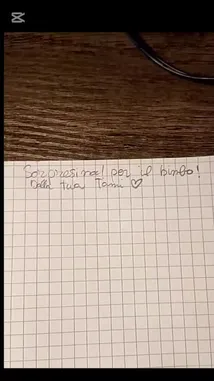 Sorpresina! per il bimbo!
Dalla tua Tami ♡